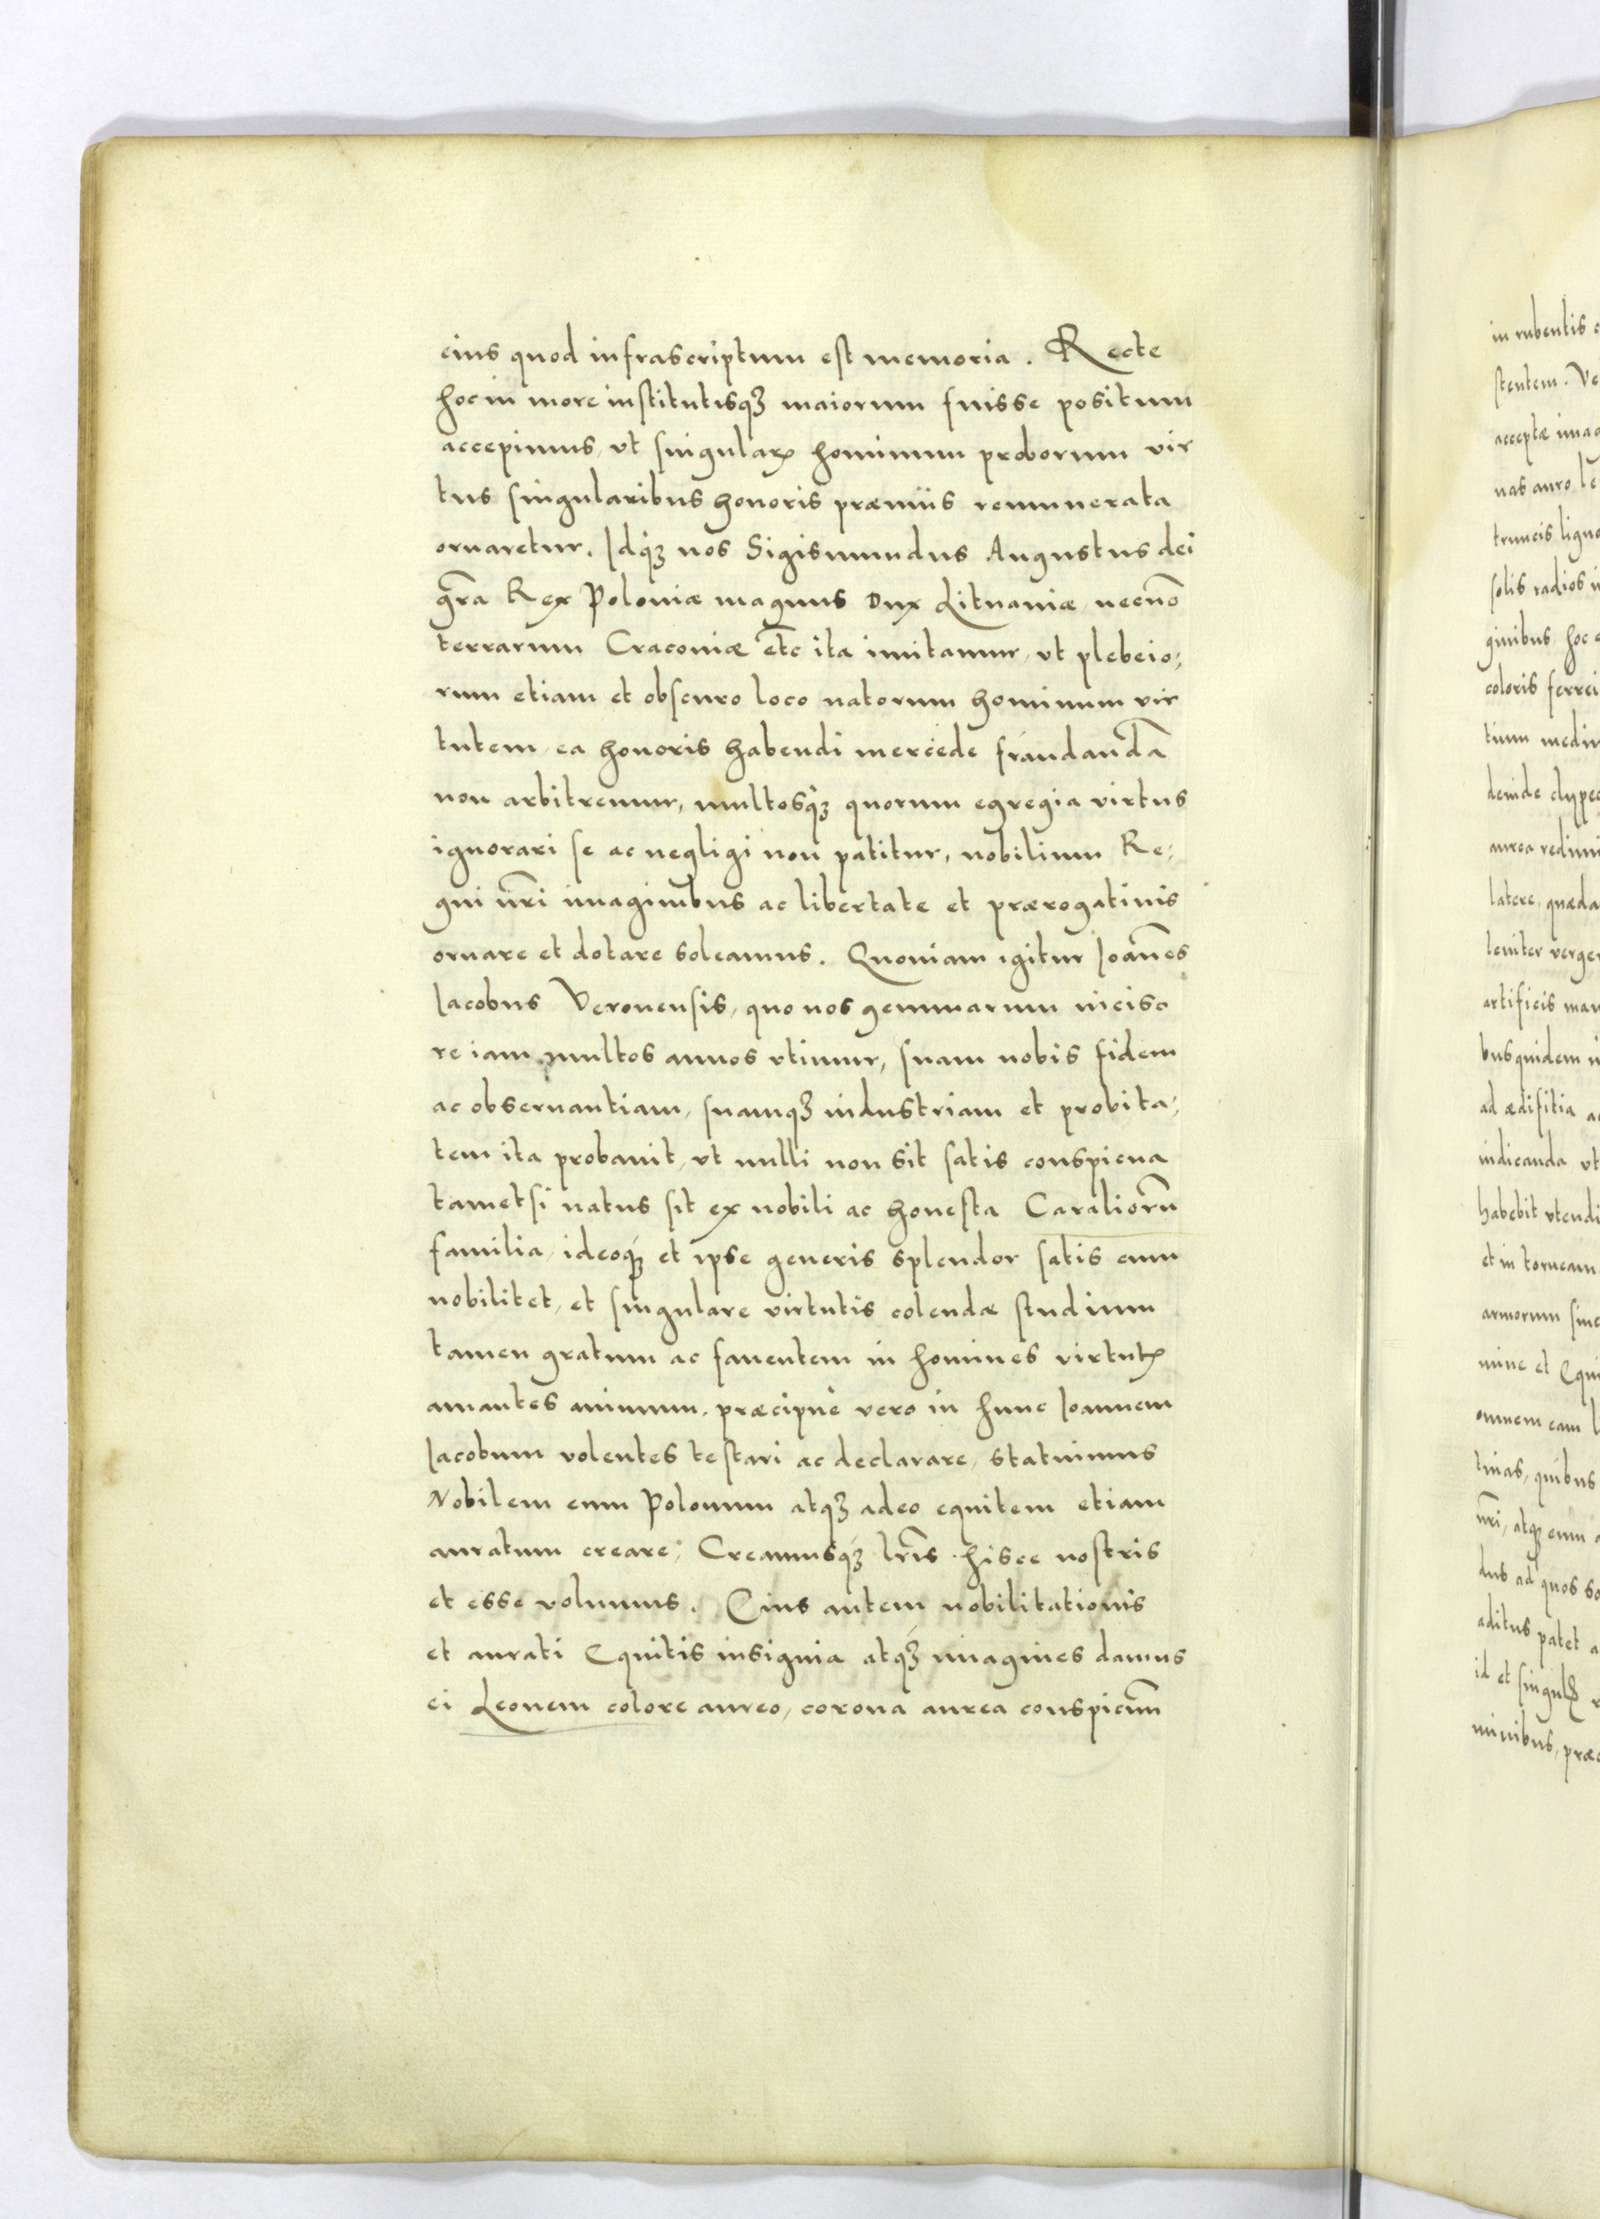 eius quod infrascriptum est memoria. Recte
hoc in more institutisqꝫ maiorum fuisse positum
accepimus, vt singulariꝝ hominum proborum vir
tus singularibus honoris præmiis remunerata
ornaretur. Idqꝫ nos Sigismundus Augustus dei
gr̃a Rex Poloniæ magnus Dux Lituaniæ, necnõ
terrarum Cracouiæ etc̃ ita imitamur, vt plebeio;
rum etiam et obscuro loco natorum hominum vir
tutem, ea honoris habendi mercede fraudandã
non arbitremur, multosqꝫ quorum egregia virtus
ignorari se ac negligi non patitur, nobilium Re;
gni nr̃i imaginibus ac libertate et prærogatiuis
ornare et dotare soleamus. Quoniam igitur Ioãnes
Iacobus Veronensis, quo nos gemmarum inciso
re iam multos annos vtimur, suam nobis fidem
ac obseruantiam, suamqꝫ industriam et probita;
tem ita probauit, vt nulli non sit satis conspicua
tametsi natus sit ex nobili ac honesta Caraliorũ
familia, ideoqꝫ et ipse generis splendor satis eum
nobilitet, et singulare virtutis colendæ studium
tamen gratum ac fauentem in homines virtutꝭ
amantes animum, præcipuè vero in hunc Ioannem
Iacobum volentes testari ac declarare, statuimus
Nobilem eum Polonum atqꝫ adeo equitem etiam
auratum creare; Creamusqꝫ lr̃is hisce nostris
et esse volumus. Eius autem nobilitationis
et aurati Equitis insignia atqꝫ imagines damus
ei Leonem colore aureo, corona aurea conspicuũ
in rubentis
stentem. Ve
acceptæ imag
nas auro, le
truncis ligno
solis radios i
ginibus, hoc
coloris ferrei
tium mediu
deinde clypeo
aurea redimi
latere, quæda
leniter verge
artificis man
bus quidem i
ad ædifitia a
indicanda vt
habebit vtendi
et in torneam
armorum sine
mine et Equi
omnem eam l
tiuas, quibus
nr̃i, atqꝫ eum a
dus ad quos so
aditus patet a
id et singul
minibus, præ